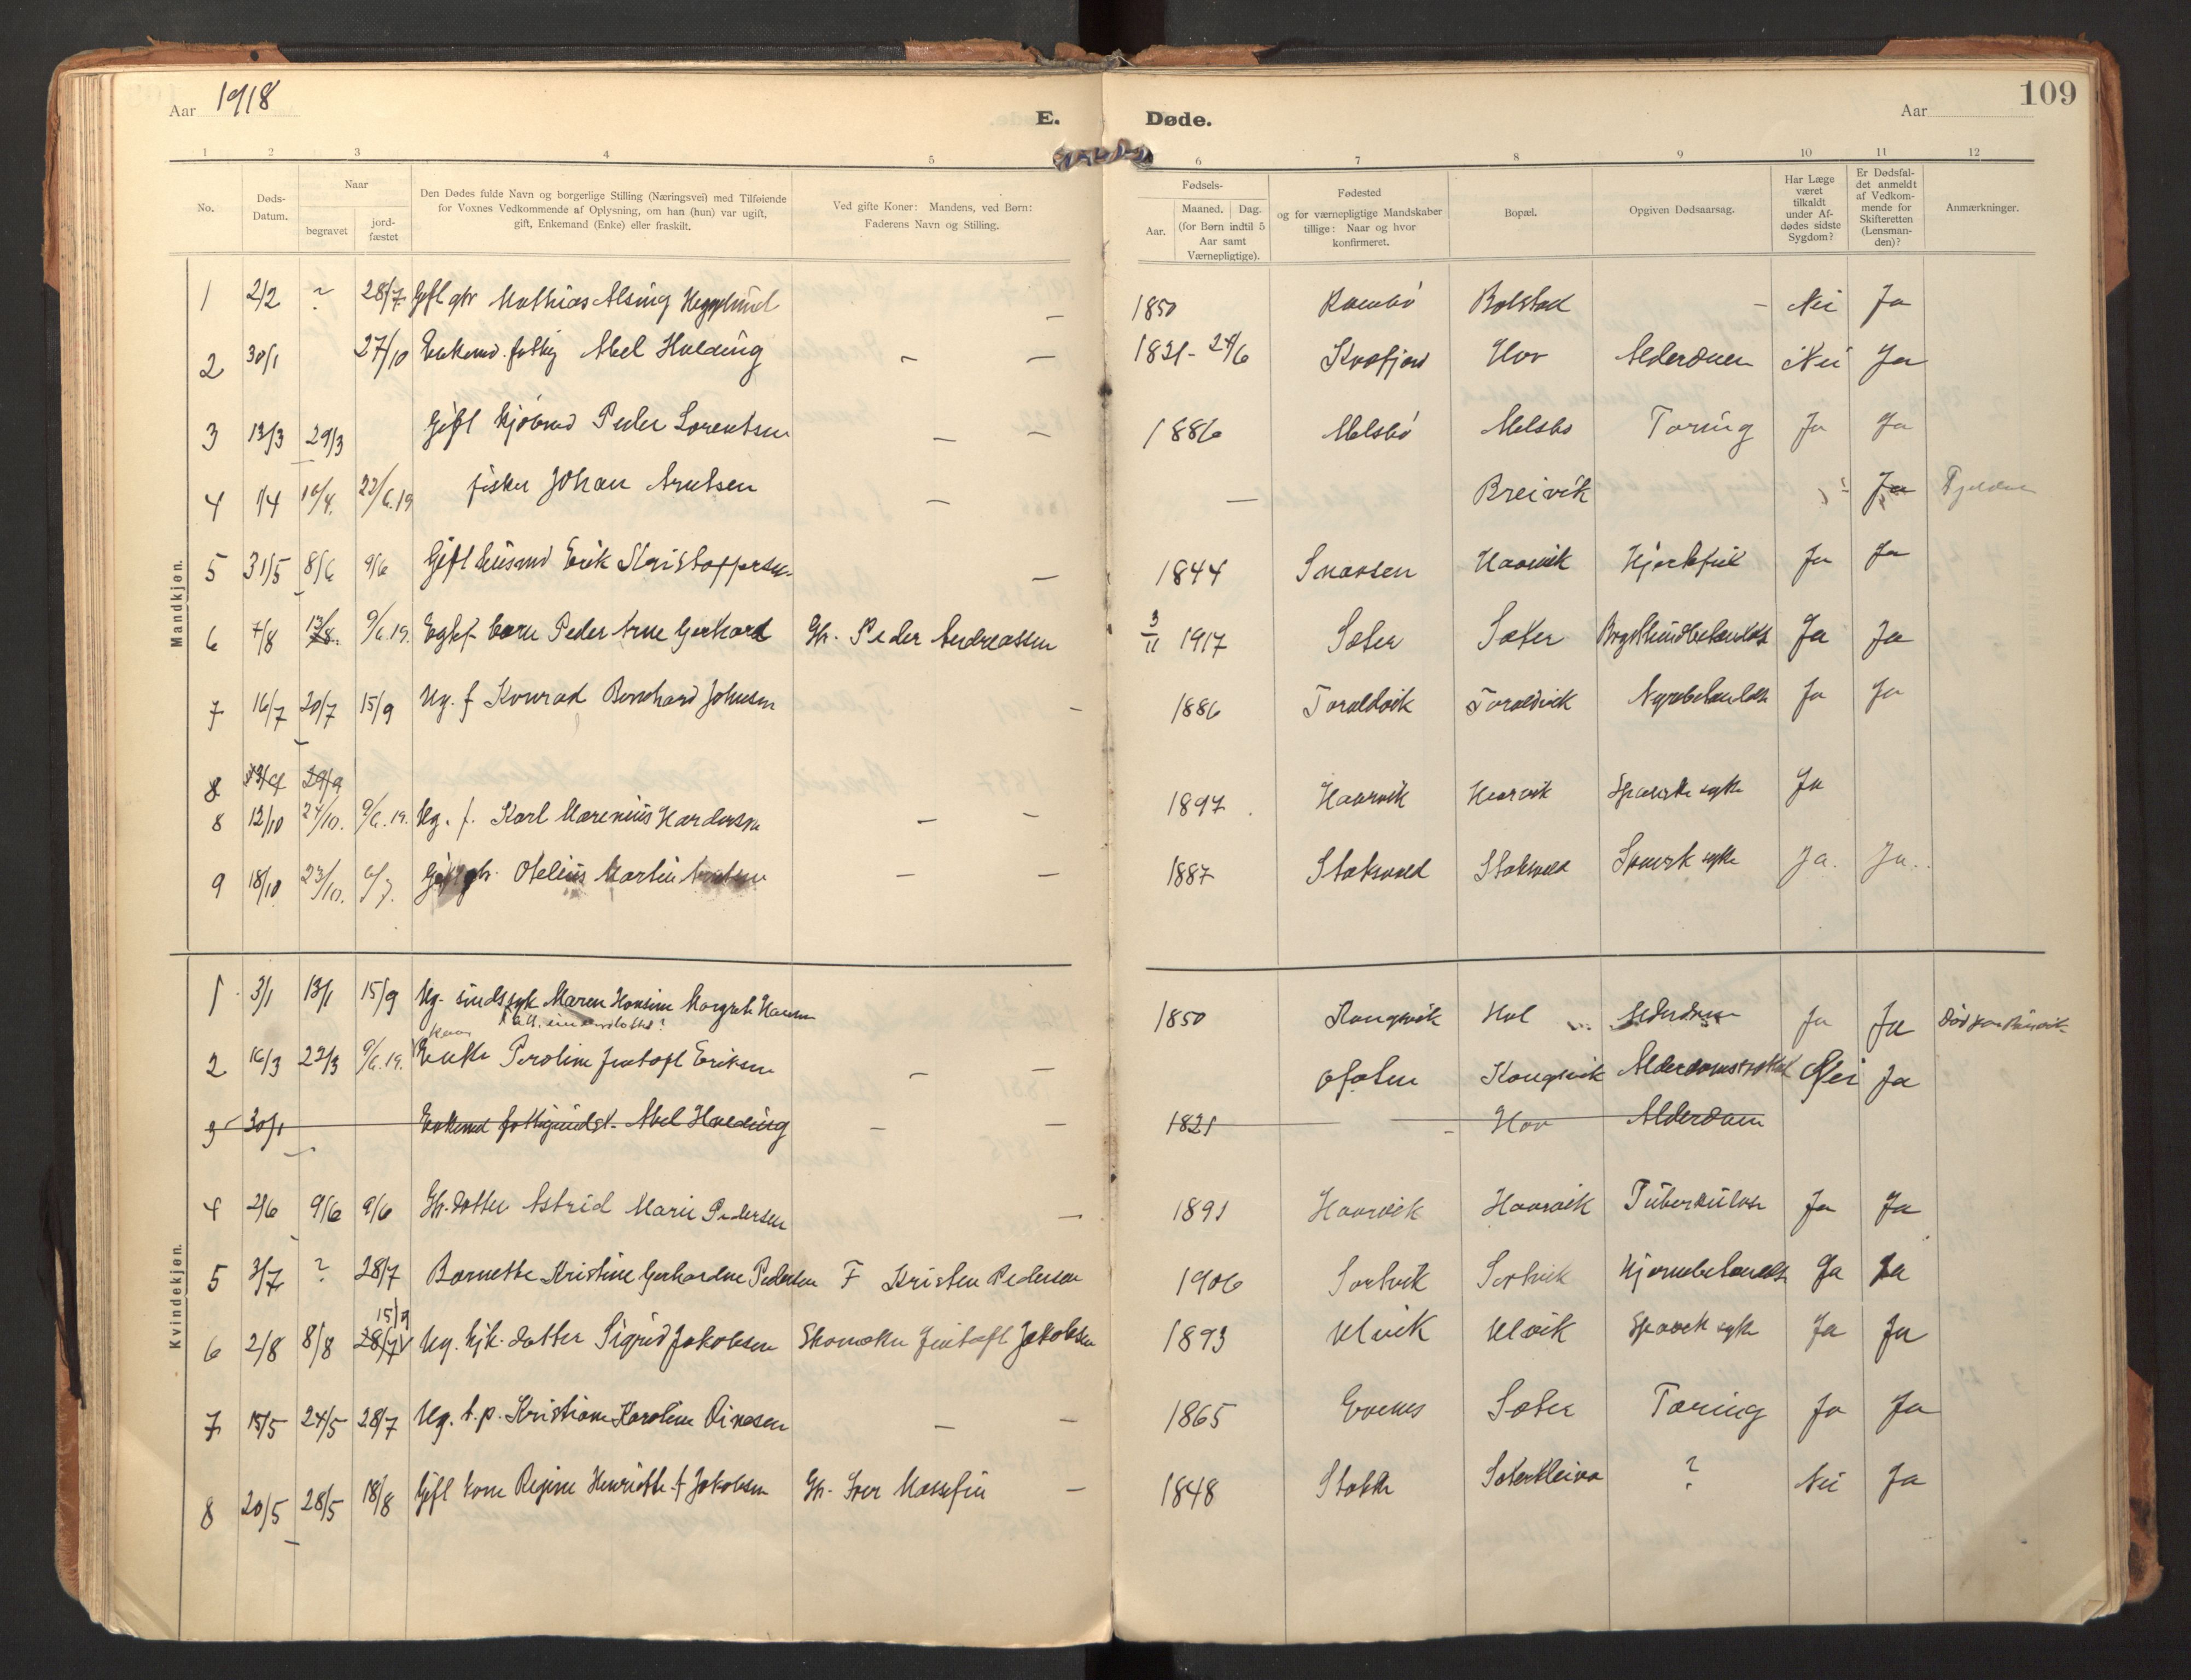 Aar 1918
E.
Døde.
Aar
109
1 2 3 4 5 6 7 8 9 10 11 12
No.
Døds-
Datum.
Naar
begravet
jord-
fæstet
Den Dødes fulde Navn og borgerlige Stilling (Næringsvei) med Tilføiende
for Voxnes Vedkommende af Oplysning, om han (hun) var ugift,
gift, Enkemand (Enke) eller fraskilt.
Ved gifte Koner: Mandens, ved Børn:
Faderens Navn og Stilling.
Fødsels-
Aar.
Maaned. Dag.
(for Børn indtil 5
Aar samt
Værnepligtige).
Fødested
og for værnepligtige Mandskaber
tillige: Naar og hvor
konfirmeret.
Bopæl.
Opgiven Dødsaarsag.
Har Læge
været
tilkaldt
under Af-
dødes sidste
Sygdom?
Er Dødsfal-
det anmeldt
af Vedkom-
mende for
Skifteretten
(Lensman-
den)?
Anmærkninger.
Mandkjøn.
1 2/2 ? 28/7 Gift gbr Mathias Alsing Hegglund – 1850 Bolstad – Nei Ja
2 30/1 27/10 Enkemd. Abel Holding – – 1821 - 24/6 Kvæfjord Hov Alderdom Nei Ja
3 13/3 29/3 Gift Kjøbmd Peder Lorentsen – – 1886 Melsbø Melsbø Tæring Ja Ja
4 1/4 10/4. 22/6.19 fisker Johan Arntsen – – Breivik Ja
5 31/5 8/6 9/6 Gift husmd Erik Kristoffersen – 1844 Snaasen Haarvik Hjertefeil Ja Ja
6 7/8 13/8. 9/6.19. Egtef. barn Peder Arne Gerhard Gbr. Peder Andreassen 3/11 1917 Sæter Sæter Ja Ja
7 16/7 20/7 15/9 Ug. f Konrad Bernhard Johnsen – 1886 Toraldvik Toraldvik Ja Ja
8 23/9 29/9
8 12/10 24/10. 9/6.19. Ug. f. Karl Marenius – – 1897 Haarvik Haarvik Spanske syke Ja
9 18/10 23/10. Gift gbr. Otelius Martin – – 1887 Stoksvold Stoksvold Spansk syke Ja. Ja.
Kvindekjøn.
1 3/1 13/1 15/9 Ug. sindssyk Maren Hansine Margrete Hansen 1850 Kongsvik Hol Alderdom Ja Ja
2 16/3 22/3 9/6.19. Enke Peroline Jentoft Eriksen – – Ofoten Kongsvik Nei Ja
3 30/1 Enkemd Abel Holding – – 1821 – Hov Alderdom
4 2/6 9/6 9/6 Gbr. datter Astrid Marie Pedersen – 1891 Haarvik Haarvik Tuberkulose Ja Ja
5 3/7 ? 28/7 Barnette Kristine Gerhardine Pedersen F Kristen Pedersen 1906 Sortvik Sortvik Hjernebetændelse Ja Ja
15/9
6 2/8 8/8 28/7 Ug. datter Sigrid Jakobsen Skomaker Jentoft Jakobsen 1893 Ulvik Ulvik Spansk syke Ja Ja
7 15/5 24/5 28/7 Ug. t.p. Kristiane Karoline – – 1865 Evenes Sæter Tæring Ja Ja
8 20/5 28/5 18/8 Gift kone Regine Henriette f Jakobsen Gbr. Iver – 1848 Stokke Sæterkleiva ? Nei Ja